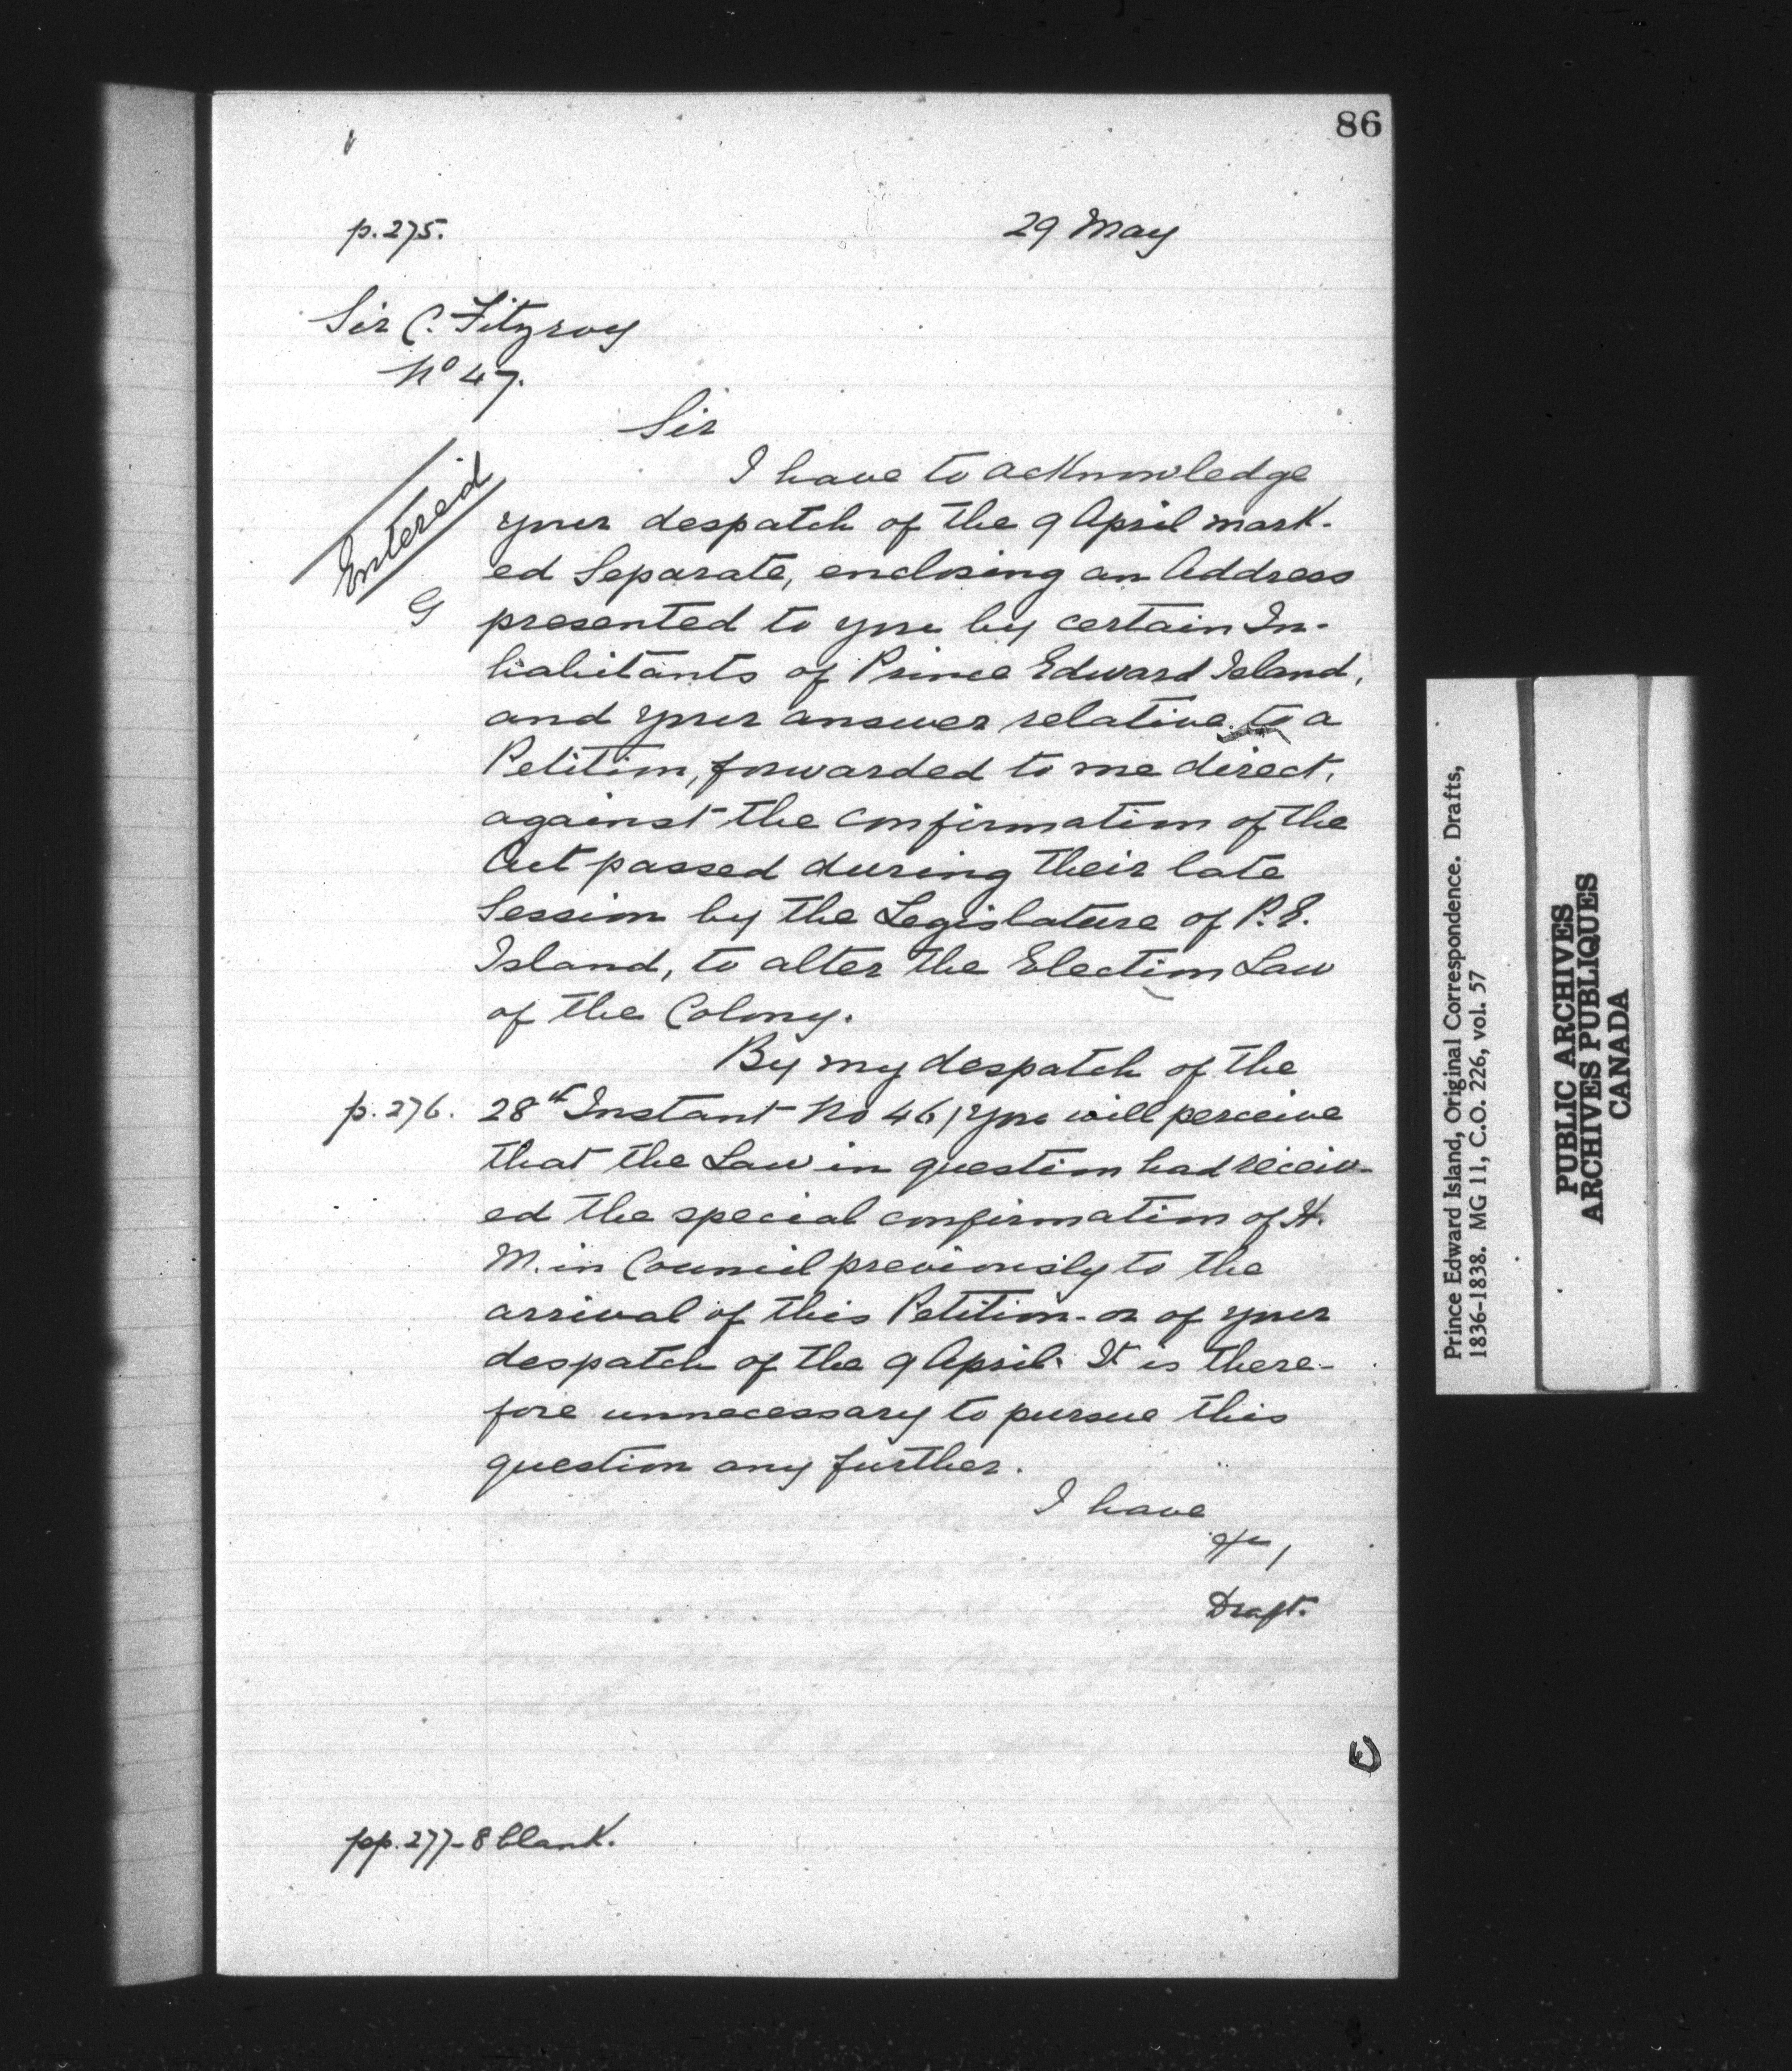 86
p. 275.
29 May
Sir C. Fitzroy
No 47.
Sir
Entered
G
I have to acknowledge
your despatch of the 9 April mark-
ed Separate, enclosing an Address
presented to you by certain In-
habitants of Prince Edward Island,
and your answer relative to a
Petition, forwarded to me direct,
against the confirmation of the
Act passed during their late
Session by the Legislature of P.E.
Island, to alter the Election Law
of the Colony.
By my despatch of the
p. 276.
28th Instant No 46, you will perceive
that the Law in question had receiv-
ed the special confirmation of H.
M. in Council previously to the
arrival of this Petition - or of your
despatch of the 9 April. It is there-
fore unnecessary to pursue this
question any further.
I have
&c,
Draft.
pp. 277-8 blank.
Prince Edward Island, Original Correspondence. Drafts,
1836-1838. MG 11, C.O. 226, vol. 57
PUBLIC ARCHIVES
ARCHIVES PUBLIQUES
CANADA